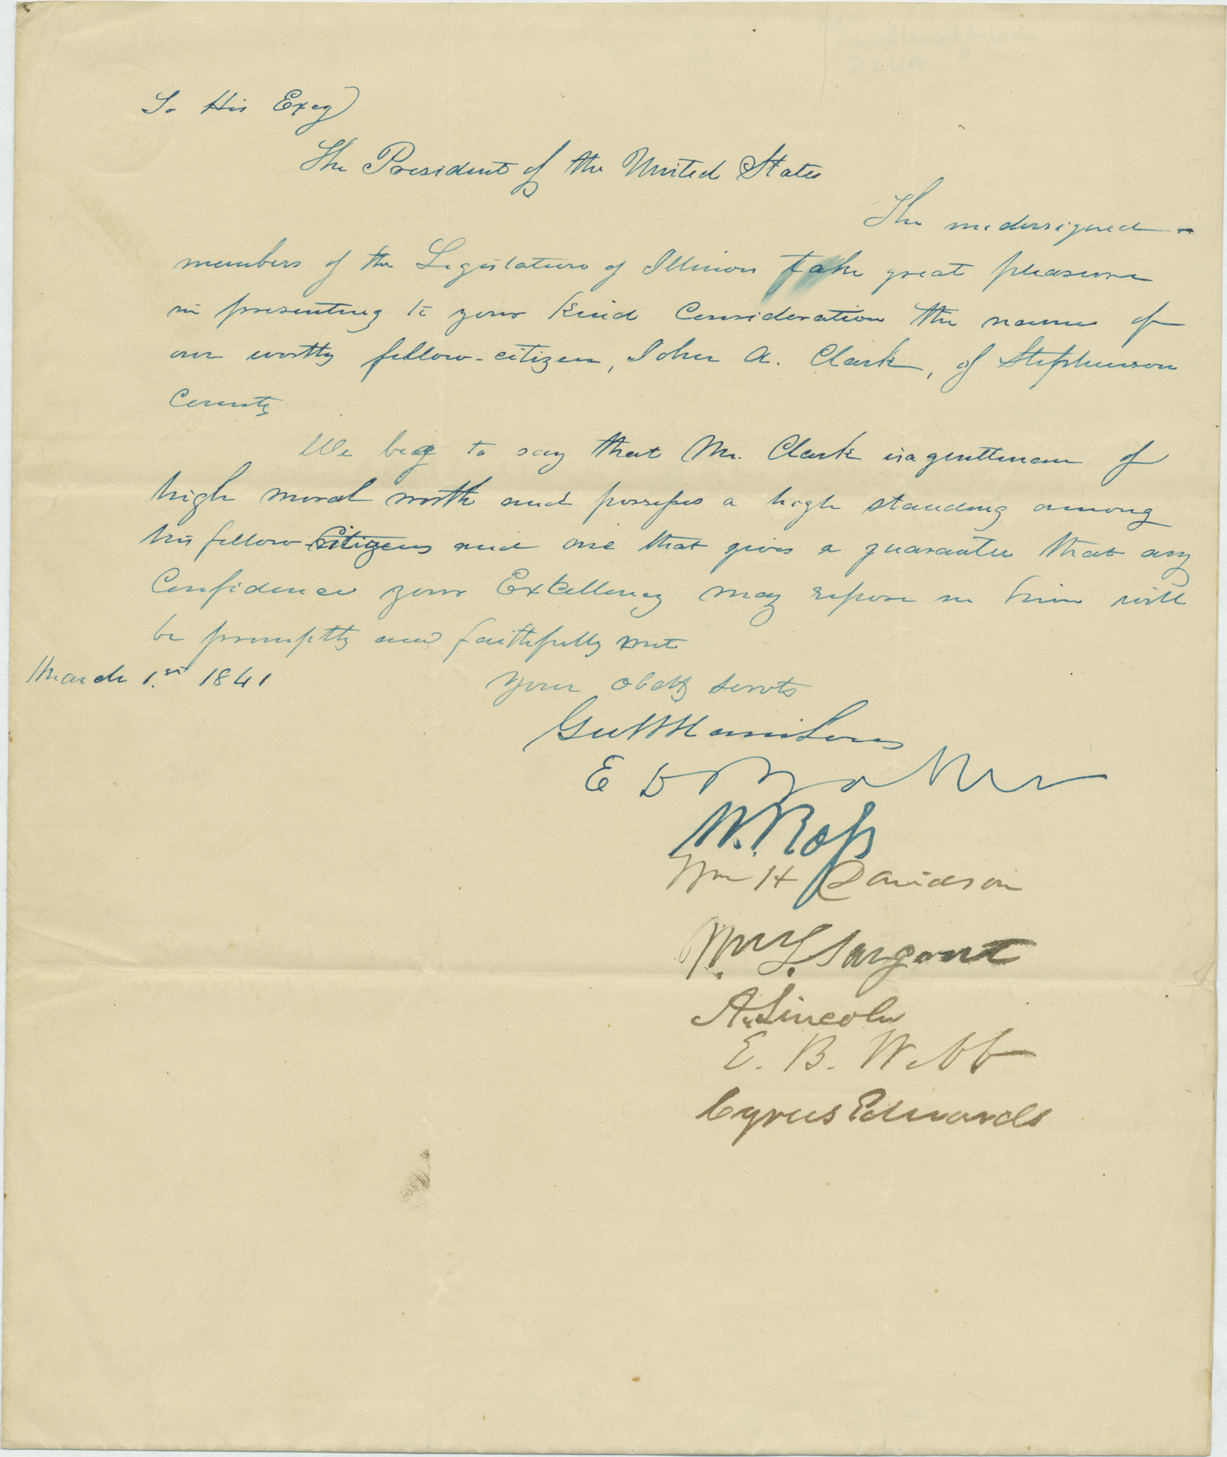 To His Excy
The President of the United States
The undersigned
members of the Legislature of Illinois take great pleasure
in presenting to your kind Consideration the name of
our worthy fellow-citizen, John A. Clark, of Stephenson
County
We beg to say that Mr. Clark is a gentleman of
high moral worth and possesses a high standing among
his fellow-Citizens and one that gives a guarantee that any
Confidence your Excellency may repose in him will
be promptly and faithfully met
March 1.st 1841
Your obdt servts
Geo W Harrison
E D Baker
W. Ross
Wm H Davidson
Wm L. Sargent
A. Lincoln
E. B. Webb
Cyrus Edwards